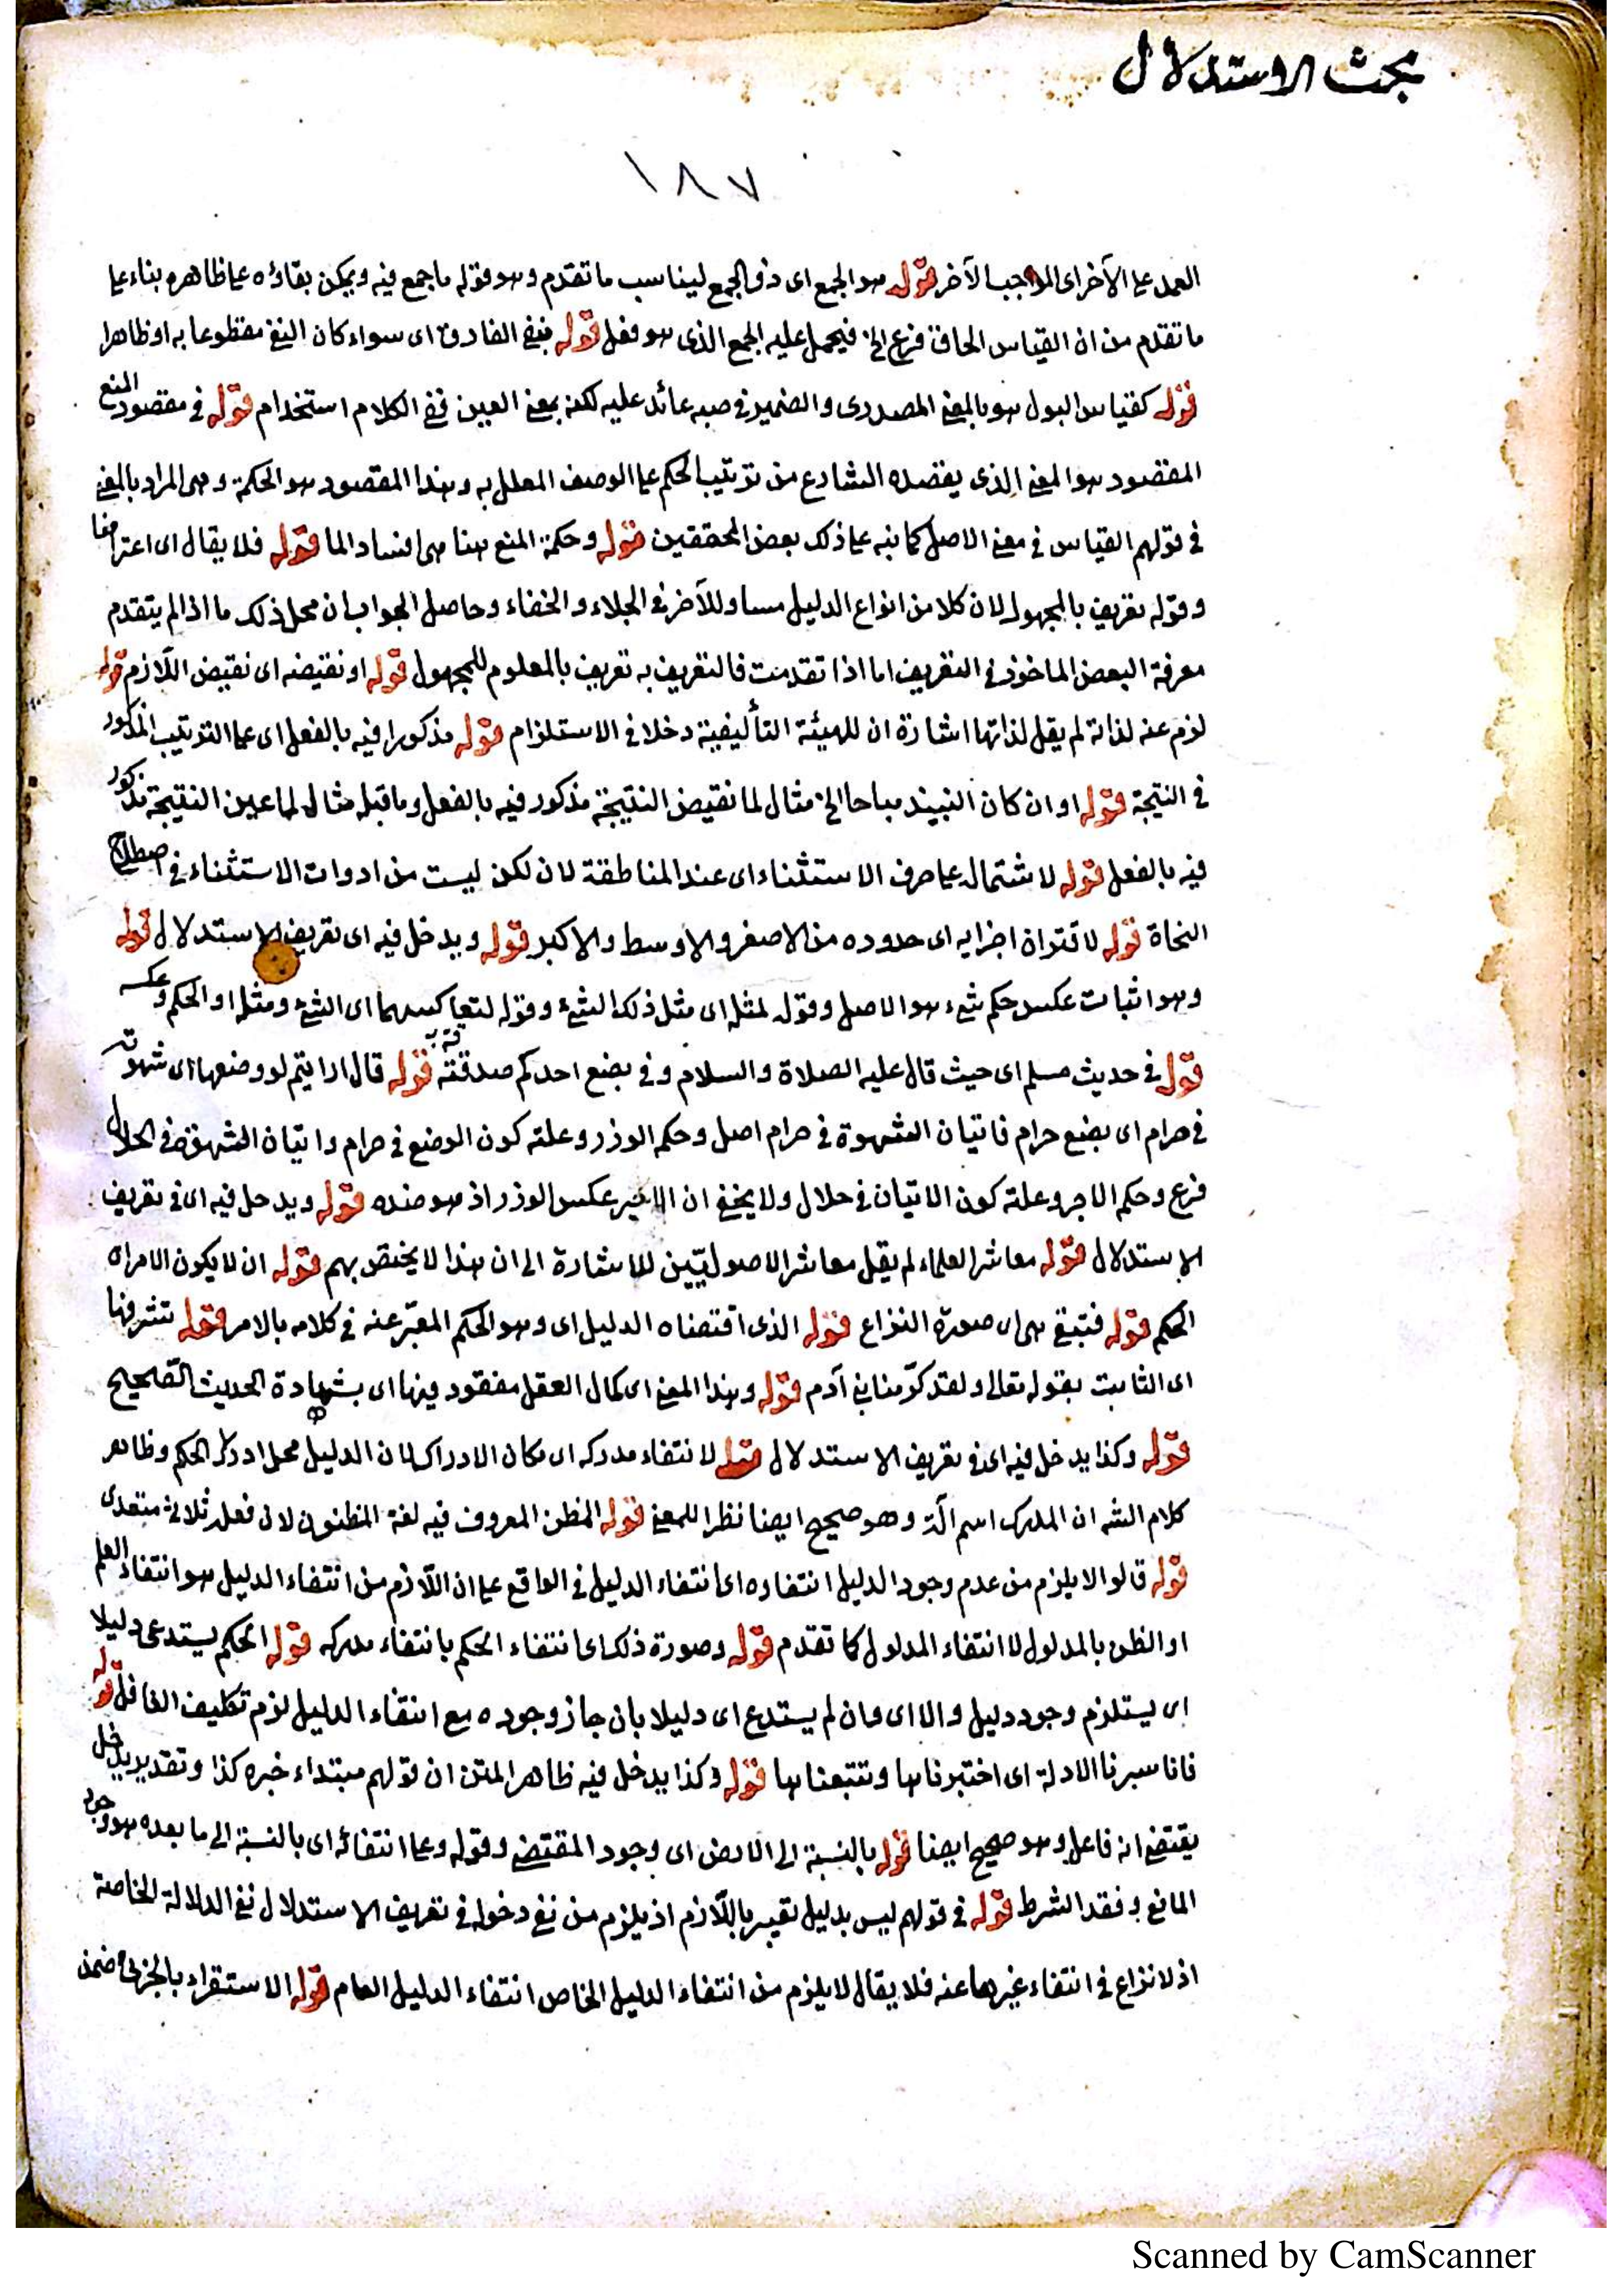 مبحث الاستدلال
١٨٧
العمل على الآخر اى الواجب الآخر قوله هو الجمع اى ذو الجمع ليناسب ما تقدم وهو قوله ما جمع فيه ويمكن بقاؤه على ظاهره بناء على
ما تقدم من ان القياس الحاق فرع الخ فيحمل عليه الجمع الذى هو فعل قوله بنفى الفارق اى سواء كان النفى مقطوعا به او ظاهرا
قوله كقياس البول هو بالمعنى المصدرى والضمير فى صبه عائد عليه لكن بمعنى العين ففى الكلام استخدام قوله فى مقصود المنع
المقصود هو المعنى الذى يقصده الشارع من ترتيب الحكم على الوصف المعلل به وهذا المقصود هو الحكمة وهى المراد بالمعنى
فى قولهم القياس فى معنى الاصل كما نبه على ذلك بعض المحققين قوله وحكمة المنع هنا هى افساد الما قوله فلا يقال اى اعتراضا
وقوله تعريف بالمجهول لان كلا من انواع الدليل مساو للآخر فى الجلاء والخفاء وحاصل الجواب ان محل ذلك ما اذا لم يتقدم
معرفة البعض الماخوذ فى التعريف اما اذا تقدمت فالتعريف به تعريف بالمعلوم للمجهول قوله او نقيضه اى نقيض اللازم قوله
لزم عنه لذاته لم يقل لذاتها اشارة ان للهيئة التأليفية دخلا فى الاستلزام قوله مذكورا فيه بالفعل اى على الترتيب المذكور
فى النتيجة قوله او ان كان النبيذ مباحا الخ مثال لما نقيض النتيجة مذكور فيه بالفعل وما قبله مثال لما عين النتيجة مذكور
فيه بالفعل قوله لاشتماله على حرف الاستثناء اى عند المناطقة لان لكن ليست من ادوات الاستثناء فى اصطلاح
النحاة قوله لاقتران اجزايه اى حدوده من الاصغر والاوسط والاكبر قوله ويدخل فيه اى تعريف الاستدلال قوله
وهو اثبات عكس حكم شىء هو الاصل وقوله لمثله اى مثل ذلك الشىء وقوله لتعاكسهما اى الشىء ومثله او الحكم وعكسه
قوله فى حديث مسلم اى حيث قال عليه الصلاة والسلام وفى بضع احدكم صدقة قوله قال ارايتم لو وضعها اى شهوته
فى حرام اى بضع حرام فاتيان الشهوة فى حرام اصل وحكم الوزر وعلته كون الوضع فى حرام واتيان الشهوة فى الحلال
فرع وحكم الاجر وعلته كون الاتيان فى حلال ولا يخفى ان عكس الوزر اذ هو ضده قوله ويدخل فيه اى فى تعريف
الاستدلال قوله معاشر العلماء لم يقل معاشر الاصوليين للاشارة الى ان هذا لا يختص بهم قوله ان لا يكون الامر اى
الحكم قوله فتبقى هى اى صورة النزاع قوله الذى اقتضاه الدليل اى وهو الحكم المعبّر عنه فى كلامه بالامر قوله لشرفها
اى الثابت بقوله تعالى ولقد كرّمنا بنى آدم قوله وهذا المعنى اى كمال العقل مفقود فيها اى بشهادة الحديث الصّحيح
قوله وكذا يدخل فيه اى فى تعريف الاستدلال قوله لانتفاء مدركه اى مكان الادراك لان الدليل محل ادراك الحكم وظاهر
كلام الشه ان المدرك اسم آلة وهو صحيح ايضا نظرا للمعنى قوله المظن المعروف فيه لغة المظنون لان فعله ثلاثى متعدى
قوله قالوا لا يلزم من عدم وجود الدليل انتفاءه اى انتفاء الدليل فى الواقع على ان اللّازم من انتفاء الدليل هو انتفاء العلم
او الظن بالمدلول لا انتفاء المدلول كما تقدم قوله وصورة ذلك اى انتفاء الحكم بانتفاء مدركه قوله الحكم يستدعى دليلا
اى يستلزم وجود دليل والا اى وان لم يستدع اى دليلا بان جاز وجوده مع انتفاء الدليل لزم تكليف الغافل قوله
فانا سبرنا الادلة اى اختبرناها وتتبعناها قوله وكذا يدخل فيه ظاهر المتن ان قولهم مبتداء خبره كذا وتقدير يدخل
يقتضى انه فاعل وهو صحيح ايضا قوله بالنسبة الى الاول اى وجود المقتضى وقوله وعلى انتفائه اى بالنسبة الى ما بعده هو وجود
المانع وفقد الشرط قوله فى قولهم ليس بدليل تعبير باللّازم اذ يلزم من نفى دخوله فى تعريف الاستدلال نفى الدلالة الخاصة
اذ لا نزاع فى انتفاء غيرها عنه فلا يقال لا يلزم من انتفاء الدليل الخاص انتفاء الدليل العام قوله الاستقراء بالجزئى ضمن
Scanned by CamScanner